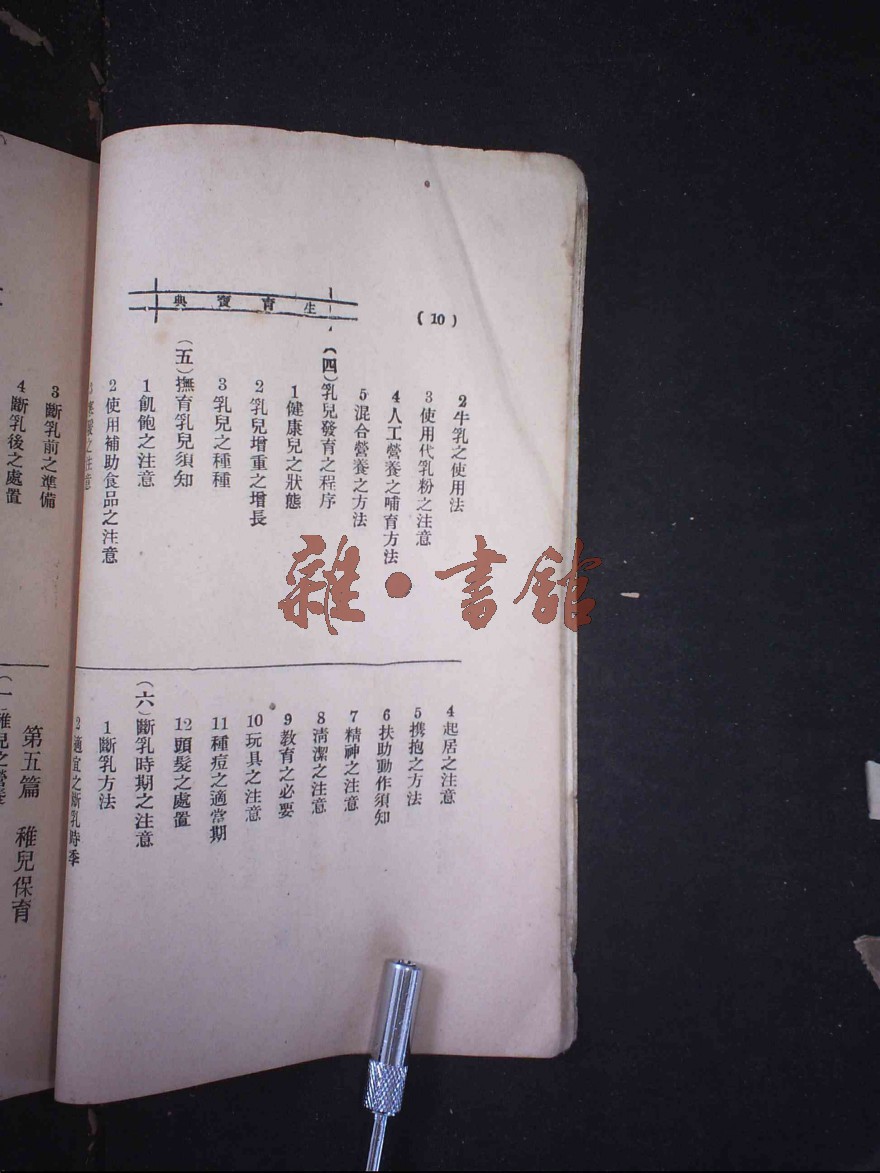 生育寶典
(10)
2 牛乳之使用法
3 使用代乳粉之注意
4 人工營養之哺育方法
5 混合營養之方法
(四)乳兒發育之程序
1 健康兒之狀態
2 乳兒增重之增長
3 乳兒之種種
(五)撫育乳兒須知
1 飢飽之注意
2 使用補助食品之注意
之注意
4 起居之注意
5 携抱之方法
6 扶助動作須知
7 精神之注意
8 清潔之注意
9 教育之必要
10 玩具之注意
11 種痘之適當期
12 頭髮之處置
(六)斷乳時期之注意
1 斷乳方法
2 適宜之斷乳時季
3 斷乳前之準備
4 斷乳後之處置
第五篇 稚兒保育
(一)稚兒之營養
雜·書館